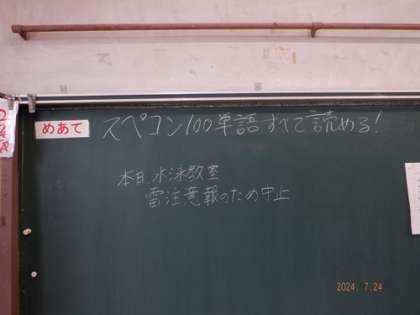 めあて スペコン100単語すべて読める!
本日水泳教室
雷注意報のため中止
2024. 7.24